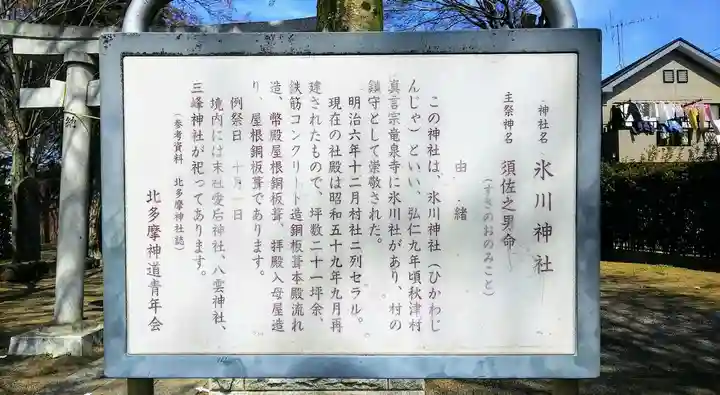 神社名　氷川神社
主祭神名　須佐之男命
（すさのおのみこと）
由緒
この神社は、氷川神社（ひかわじ
んじゃ）といい、弘仁九年頃秋津村
真言宗竜泉寺に氷川社があり、村の
鎮守として崇敬された。
明治六年十二月村社ニ列セラル。
現在の社殿は昭和五十九年九月再
建されたもので、坪数二十一坪余、
鉄筋コンクリート造銅板葺本殿流れ
造、幣殿屋根銅板葺、拝殿入母屋造
り、屋根銅板葺であります。
例祭日　十月一日
境内には末社愛宕神社、八雲神社、
三峰神社が祀ってあります。
（参考資料　北多摩神社誌）
北多摩神道青年会